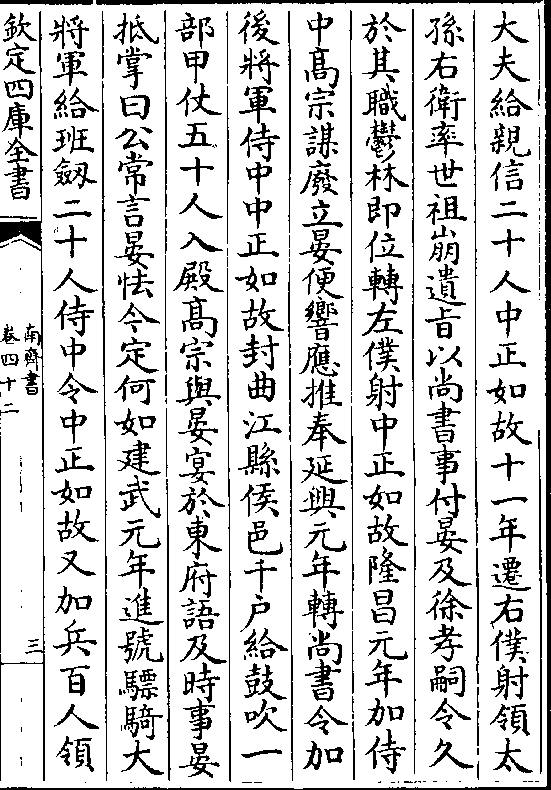 大夫給親信二十人中正如故十一年遷右僕射領太
孫右衛率世祖崩遺旨以尚書事付晏及徐孝嗣令久
於其職鬱林即位轉左僕射中正如故隆昌元年加侍
中髙宗謀廢立晏便響應推奉延興元年轉尚書令加
後將軍侍中中正如故封曲江縣侯邑千户給鼓吹一
部甲仗五十人入殿髙宗與晏宴於東府語及時事晏
抵掌曰公常言晏怯今定何如建武元年進號驃騎大
將軍給班劔二十人侍中令中正如故又加兵百人領
欽定四庫全書
南齊書
卷四十二
三